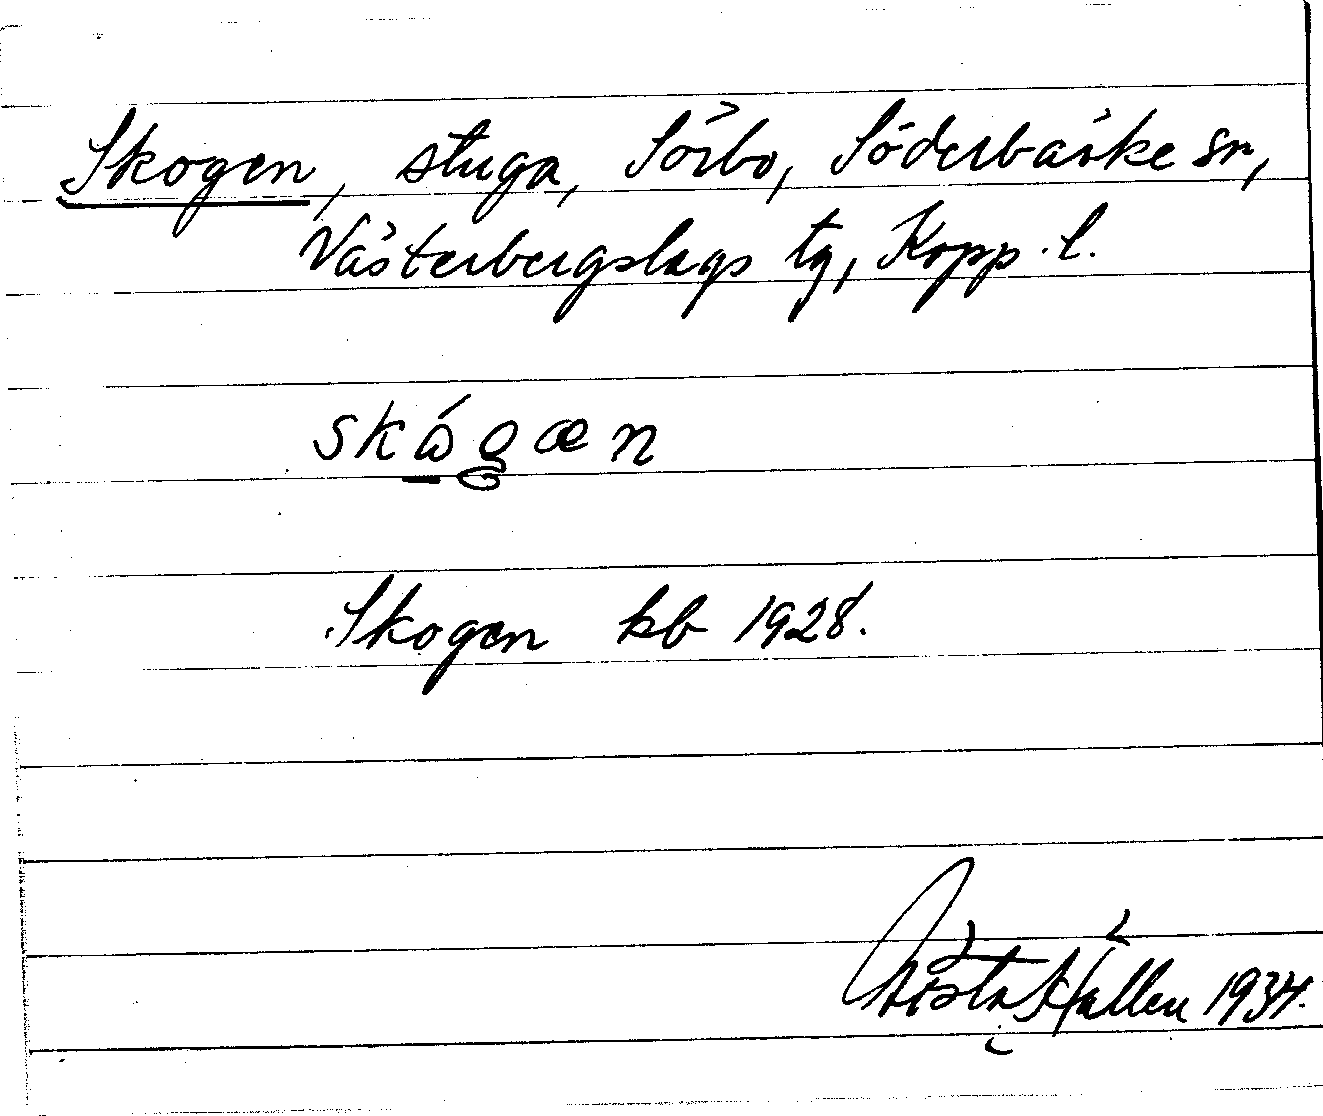 Skogen, stuga, Sörbo, Söderbärke sn,
Västerbergslags tg, Kopp. l.
skógæn
Skogen kb 1928.
Gösta Hallén 1934.